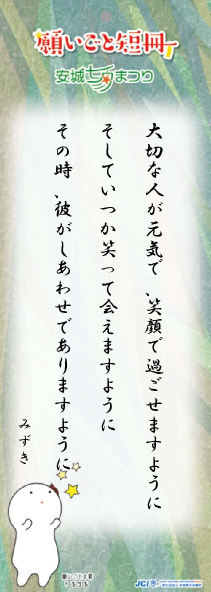 願いごと短冊
安城七夕まつり
大切な人が元気で、笑顔で過ごせますように
そしていつか笑って会えますように
その時、彼がしあわせでありますように
みずき
JCI